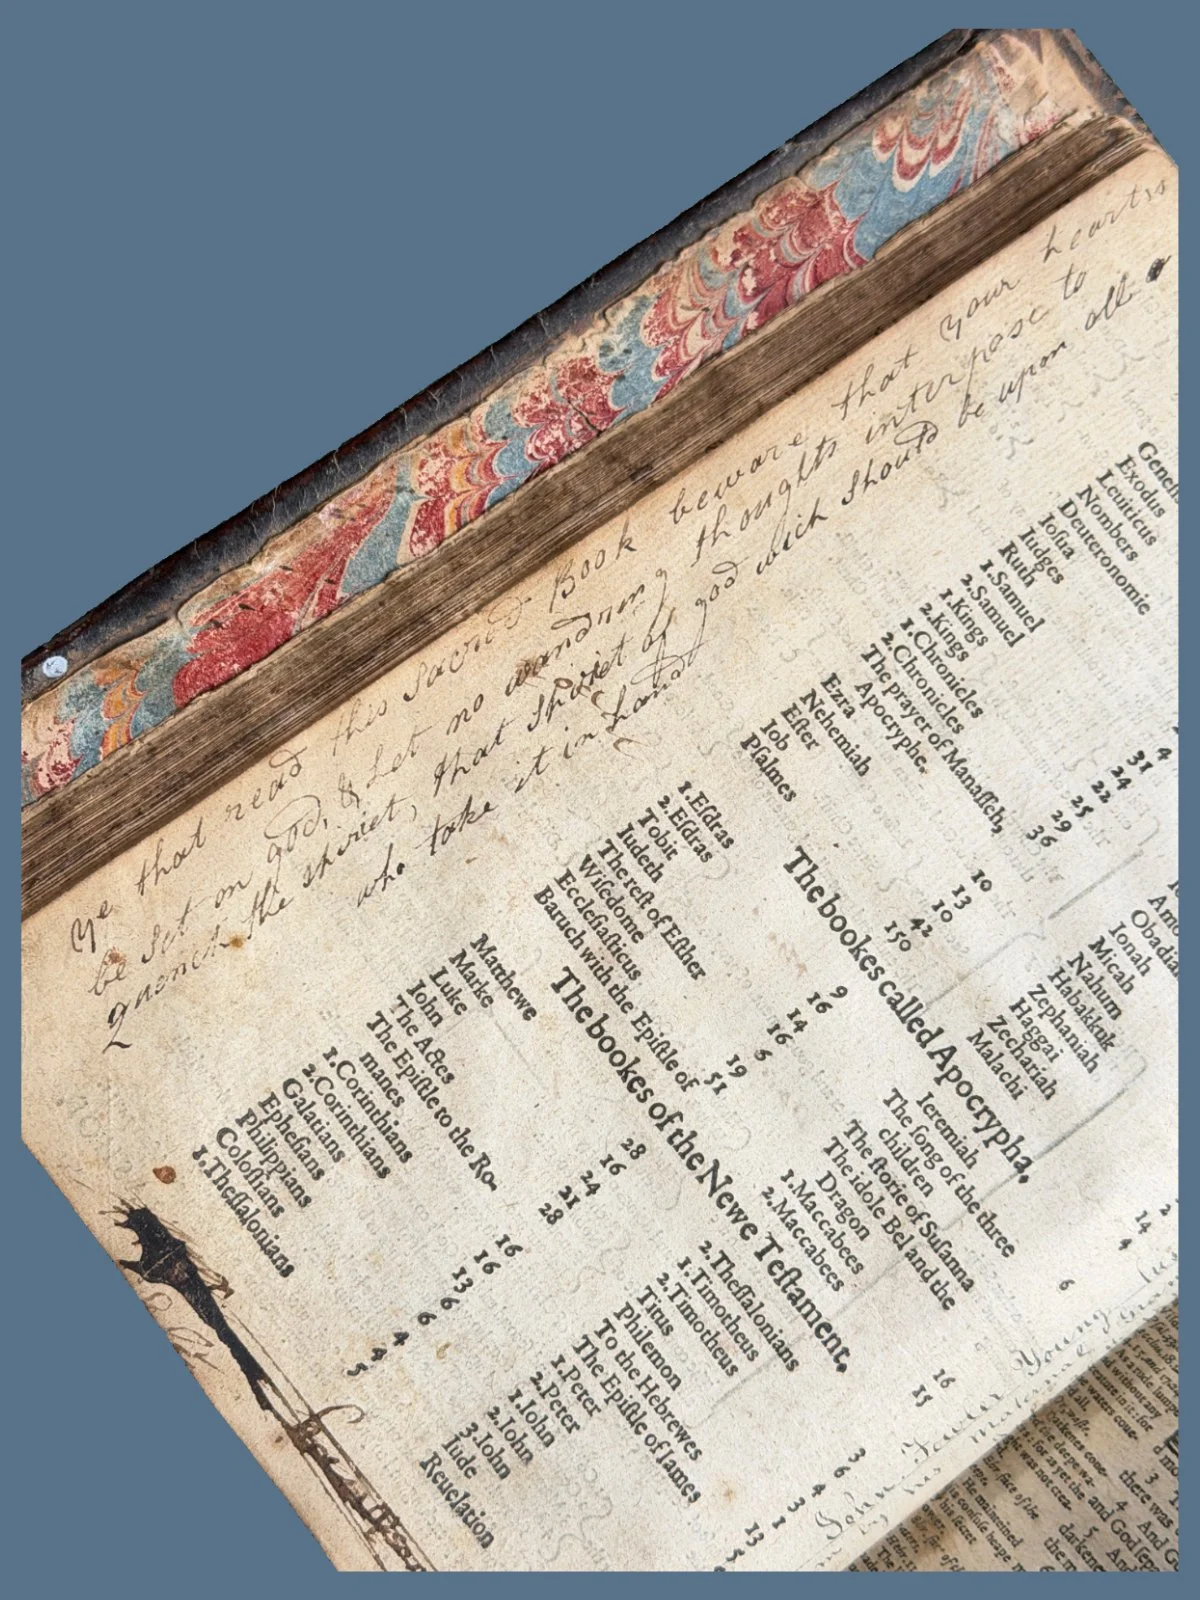 Ye that read this Sacred Book beware that your hearts
be set on god, & Let no wandring thoughts interpose to
Quench the spiriet, that spiriet of god wich should be upon all
who take it in hand
Geneſi
Exodus
Leuiticus
Nombers
Deuteronomie
Ioſua
Iudges
Ruth 4
1.Samuel 31
2.Samuel 24
1.Kings 22
2.Kings 25
1.Chronicles 29
2.Chronicles 36
The prayer of Manaſſeh,
Apocryphe.
Ezra 10
Nehemiah 13
Eſter 10
Iob 42
Pſalmes 150
Amo
Obadia
Ionah
Micah
Nahum
Habakkuk
Zephaniah
Haggai 2
Zechariah 14
Malachi 4
The bookes called Apocrypha.
1.Eſdras 9
2.Eſdras 16
Tobit 14
Iudeth 16
The reſt of Eſther 6
Wiſedome 19
Eccleſiaſticus 51
Baruch with the Epiſtle of
Ieremiah 6
The ſong of the three
children
The ſtorie of Suſanna
The idole Bel and the
Dragon
1.Maccabees 16
2.Maccabees 15
The bookes of the Newe Teſtament.
Matthewe 28
Marke 16
Luke 24
Iohn 21
The Actes 28
The Epiſtle to the Ro-
manes 16
1.Corinthians 16
2.Corinthians 13
Galatians 6
Epheſians 6
Philippians 4
Coloſſians 4
1.Theſſalonians 5
2.Theſſalonians 3
1.Timotheus 6
2.Timotheus 4
Titus 3
Philemon 1
To the Hebrewes 13
The Epiſtle of Iames 5
1.Peter
2.Peter
1.Iohn
2.Iohn
3.Iohn
Iude
Reuelation
John Fowler Young